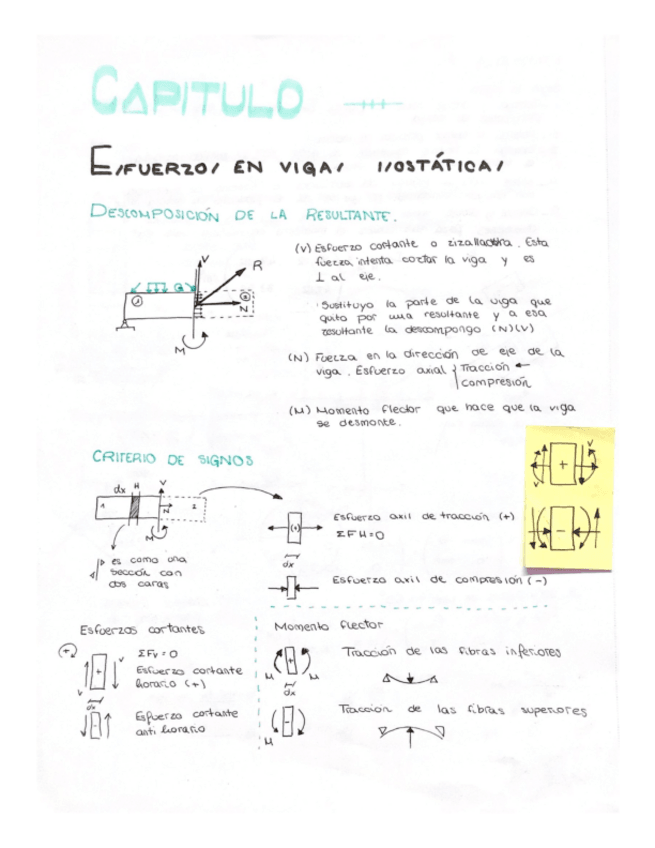 CAPITULO
ESFUERZOS EN VIGAS ISOSTÁTICAS
DESCOMPOSICIÓN DE LA RESULTANTE.
(V) Esfuerzo cortante o zizalladora. Esta
fuerza, intenta cortar la viga y es
⊥ al eje.
Sustituyo la parte de la viga que
quito por una resultante y a esa
resultante la descompongo (N)(V)
(N) Fuerza en la dirección de eje de la
viga. Esfuerzo axial { Tracción ←
compresión
(M) Momento flector que hace que la viga
se desmonte.
V
R
Q
1
2
N
M
CRITERIO DE SIGNOS
dx H V
1
N
2
M
es como una
sección con
dos caras
(+)
Esfuerzo axil de tracción (+)
ΣFH=0
dx
Esfuerzo axil de compresión (-)
V
+
V
-
Esfuerzos cortantes
+
ΣFv=0
Esfuerzo cortante
horario (+)
+
V
V
dx
-
Esfuerzo cortante
anti horario
Momento flector
+
M M
dx
Tracción de las fibras inferiores
-
M
Traccion de las fibras superiores